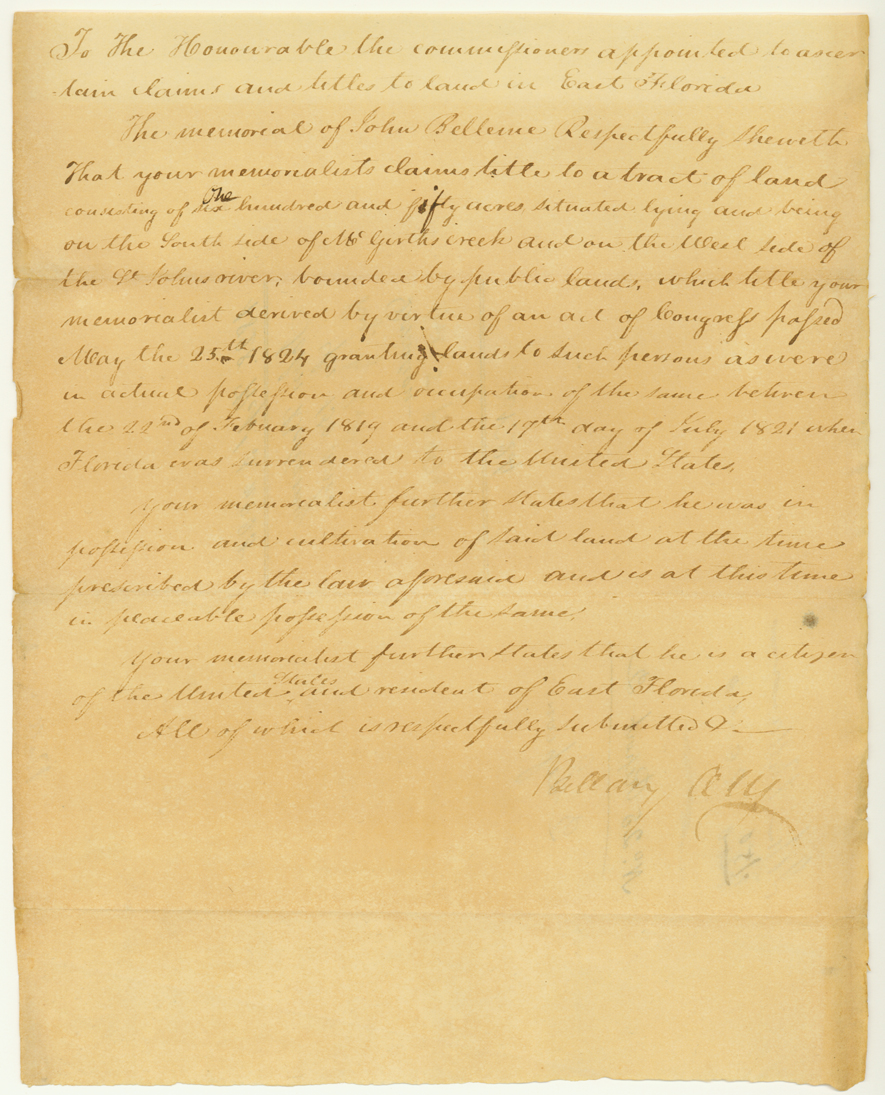 To The Honourable the commissioners appointed to ascer
-tain claims and titles to land in East Florida
The memorial of John Belleme Respectfully Sheweth
That your memorialists claims title to a tract of land
consisting of six One hundred and fifty acres situated lying and being
on the South side of Mc Girths creek and on the West side of
the St Johns river, bounded by public lands, which title your
memorialist derived by virtue of an act of Congress passed
May the 25th 1824 granting lands to such persons as were
in actual possession and occupation of the same betwen
the 22nd of Febuary 1819 and the 17th day of July 1821 when
Florida was surrendered to the United States.
Your memorialist further states that he was in
possession and cultivation of said land at the time
prescribed by the law aforesaid and is at this time
in peaceable possession of the same.
Your memorialist further states that he is a citizen
of the United States and resident of East Florida,
All of which is respectfully submitted &c
Bellamy Atty